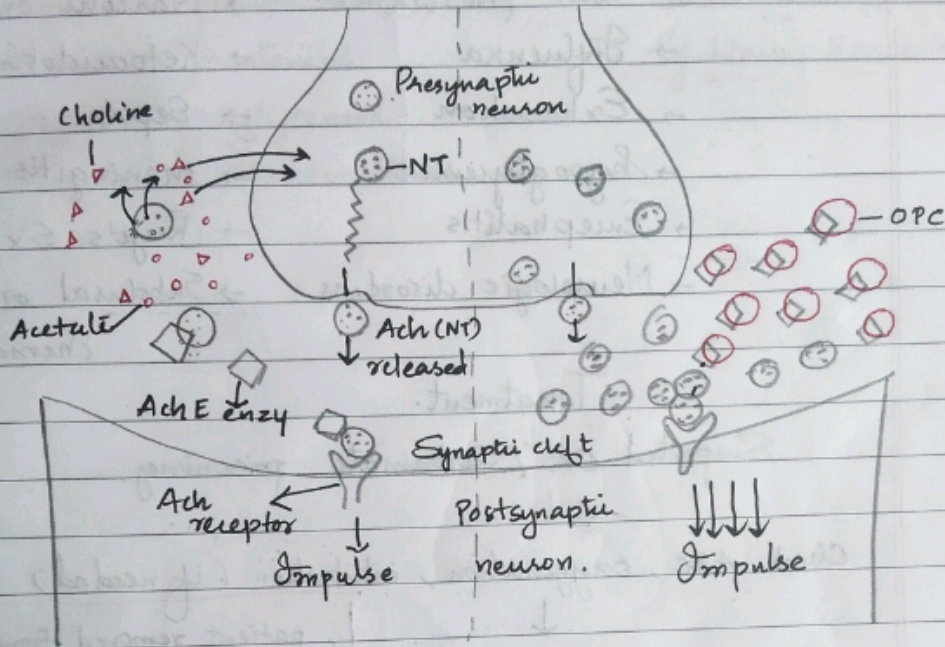 Presynaptic
neuron
Choline
NT
OPC
Acetate
Ach (NT)
released
AchE enzy
Synaptic cleft
Ach
receptor
Postsynaptic
neuron.
Impulse
Impulse